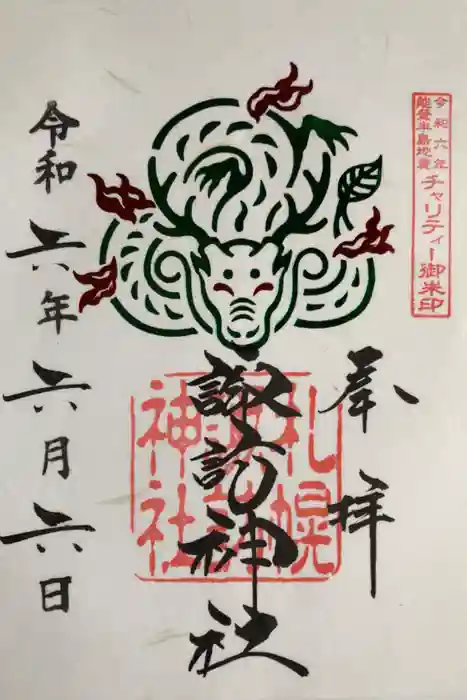 令和六年
能登半島地震
チャリティー御朱印
奉拝
札幌
諏訪
神社
諏訪神社
令和六年六月六日